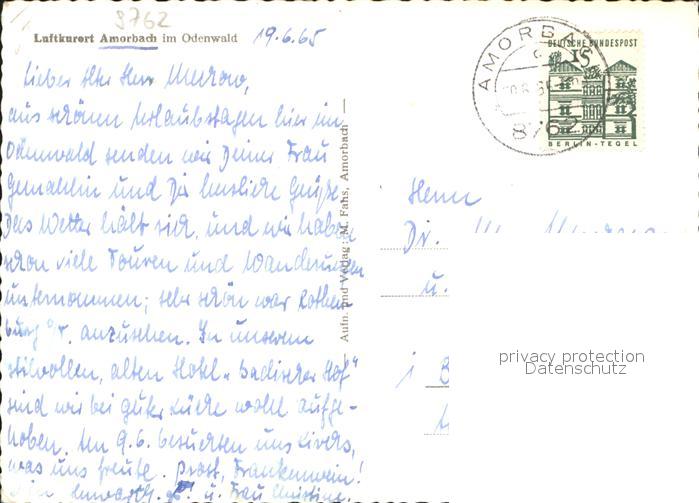 8762
Luftkurort Amorbach im Odenwald
19.6.65
Lieber Alter Herr
aus schönen Urlaubstagen hier im
Odenwald senden wir Deiner Frau
Gemahlin und Dir herzliche Grüße.
Das Wetter hält sich, und wir haben
schon viele Touren und Wanderungen
unternommen; sehr schön war Rothen-
burg o/T. anzusehen. In unserem
stilvollen, alten Hotel „Badischer Hof"
sind wir bei guter Küche wohl aufge-
hoben. Am 9.6. besuchten uns
was uns freute. Prost, Frankenwein!
u. Frau Christine
Aufn. und Verlag: M. Fahs, Amorbach —
AMORBACH
8762
DEUTSCHE BUNDESPOST
15
BERLIN-TEGEL
Herrn
Dir.
u.
i
privacy protection
Datenschutz